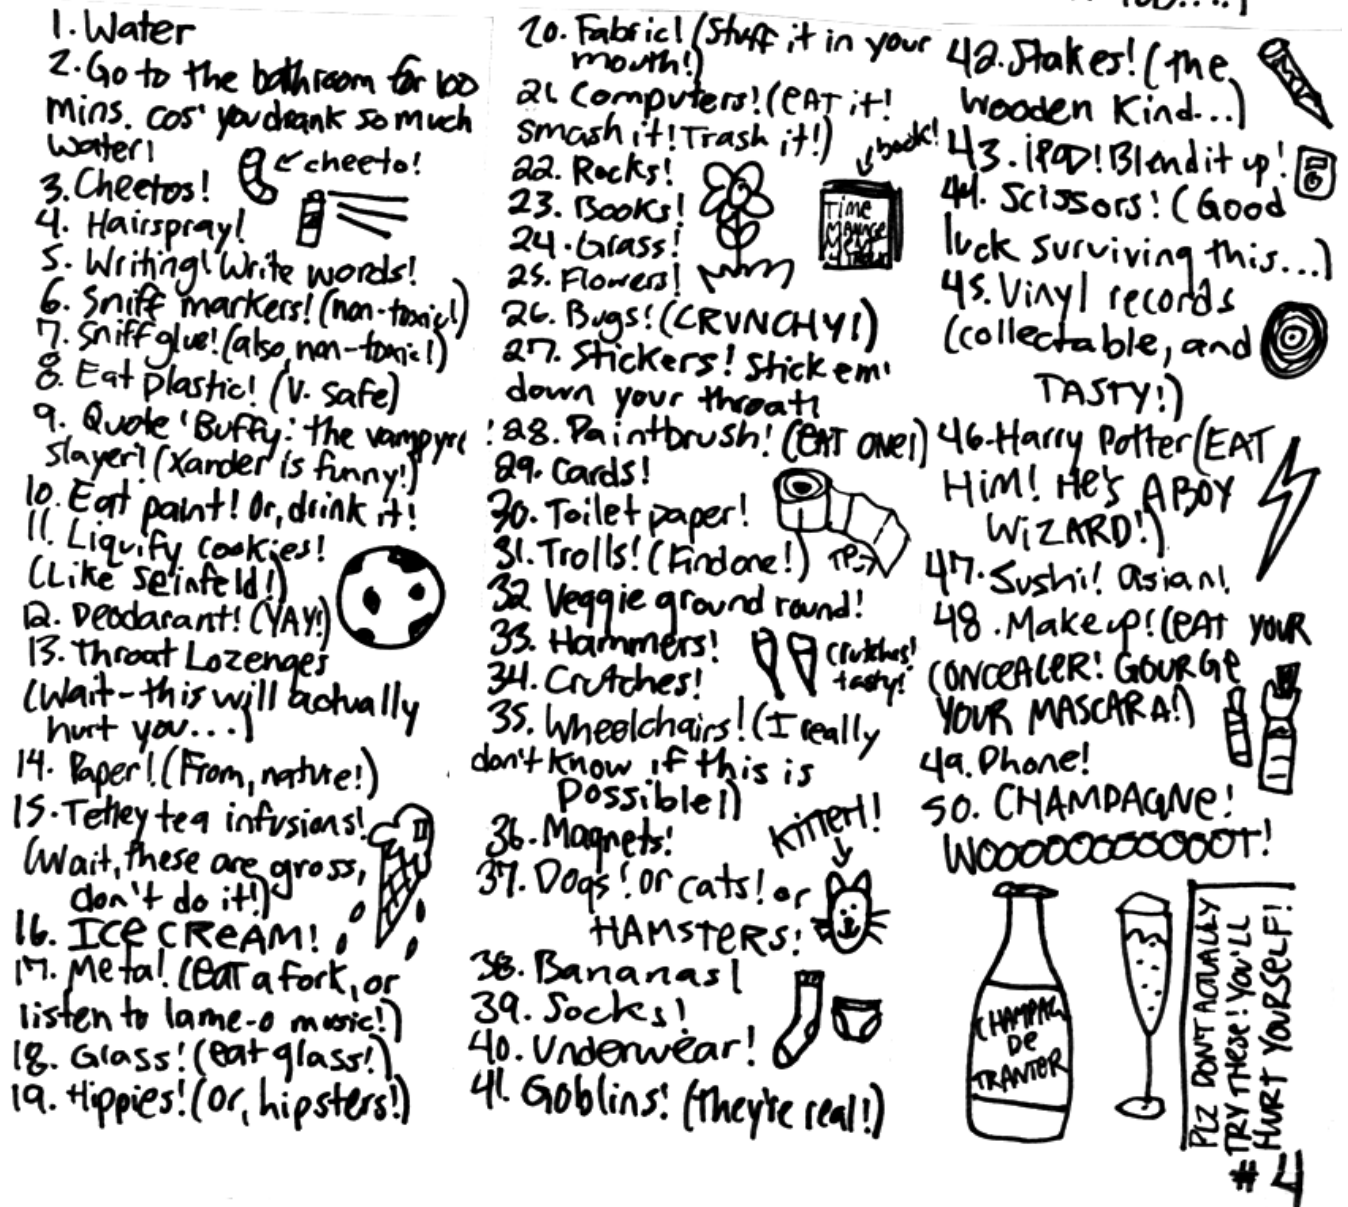 1. Water
2. Go to the bathroom for 100
mins. cos' you drank so much
water!
← cheeto!
3. Cheetos!
4. Hairspray!
5. Writing! Write words!
6. Sniff markers! (non-toxic!)
7. Sniff glue! (also, non-toxic!)
8. Eat plastic! (V. safe)
9. Quote 'Buffy: the vampyre
slayer'! (Xander is funny!)
10. Eat paint! Or, drink it!
11. Liquify cookies!
(Like Seinfeld!)
12. Deodarant! (YAY!)
13. Throat Lozenges
(Wait - this will actually
hurt you...)
14. Paper! (From, nature!)
15. Tetley tea infusions!
(Wait, these are gross,
don't do it!)
16. ICE CREAM!
17. Metal (eat a fork, or
listen to lame-o music!)
18. Glass! (eat glass!)
19. Hippies! (Or, hipsters!)
20. Fabric! (Stuff it in your
mouth!)
21. Computers! (EAT it!
Smash it! Trash it!)
book!
22. Rocks!
23. Books!
Time
24. Grass!
25. Flowers!
26. Bugs! (CRUNCHY!)
27. Stickers! Stick em'
down your throat!
! 28. Paintbrush! (EAT ONE!)
29. Cards!
30. Toilet paper!
TP →
31. Trolls! (Find one!)
32. Veggie ground round!
33. Hammers!
crutches!
tasty!
34. Crutches!
35. Wheelchairs! (I really
don't know if this is
possible!)
36. Magnets!
Kitteh!
37. Dogs! or cats! or
HAMSTERS!
38. Bananas!
39. Socks!
40. Underwear!
41. Goblins! (They're real!)
42. Stakes! (the
wooden kind...)
43. iPOD! Blend it up!
44. Scissors! (Good
luck surviving this...)
45. Vinyl records
(collectable, and
TASTY!)
46. Harry Potter (EAT
HiM! He's A BOY
WiZARD!)
47. Sushi! Asian!
48. Makeup! (EAT YOUR
CONCEALER! GOURGE
YOUR MASCARA!)
49. Phone!
50. CHAMPAGNE!
WOOOOOOOOOOOT!
CHAMPAG
De
TRANTOR
PLZ DONT ACTUALLY
TRY THESE! YOU'LL
HURT YOURSELF!
#4